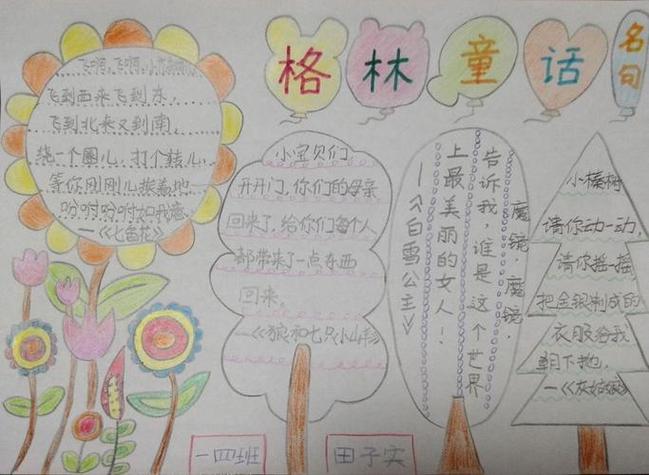 格林童话
名句
飞啊,飞啊,小花瓣啊,
飞到西来飞到东,
飞到北来又到南,
绕一个圈儿,打个转儿,
等你刚刚儿挨着地
吩咐吩咐如我意
—《七色花》
小宝贝们
开开门,你们的母亲
回来了,给你们每个人
都带来了一点东西
回来。
—《狼和七只小山羊》
魔镜,魔镜,
告诉我,谁是这个世界
上最美丽的女人!
—《白雪公主》
小榛树
请你动一动,
请你摇一摇
把金银制成的
衣服给我
朝下抛,
—《灰姑娘》
一四班
田子实